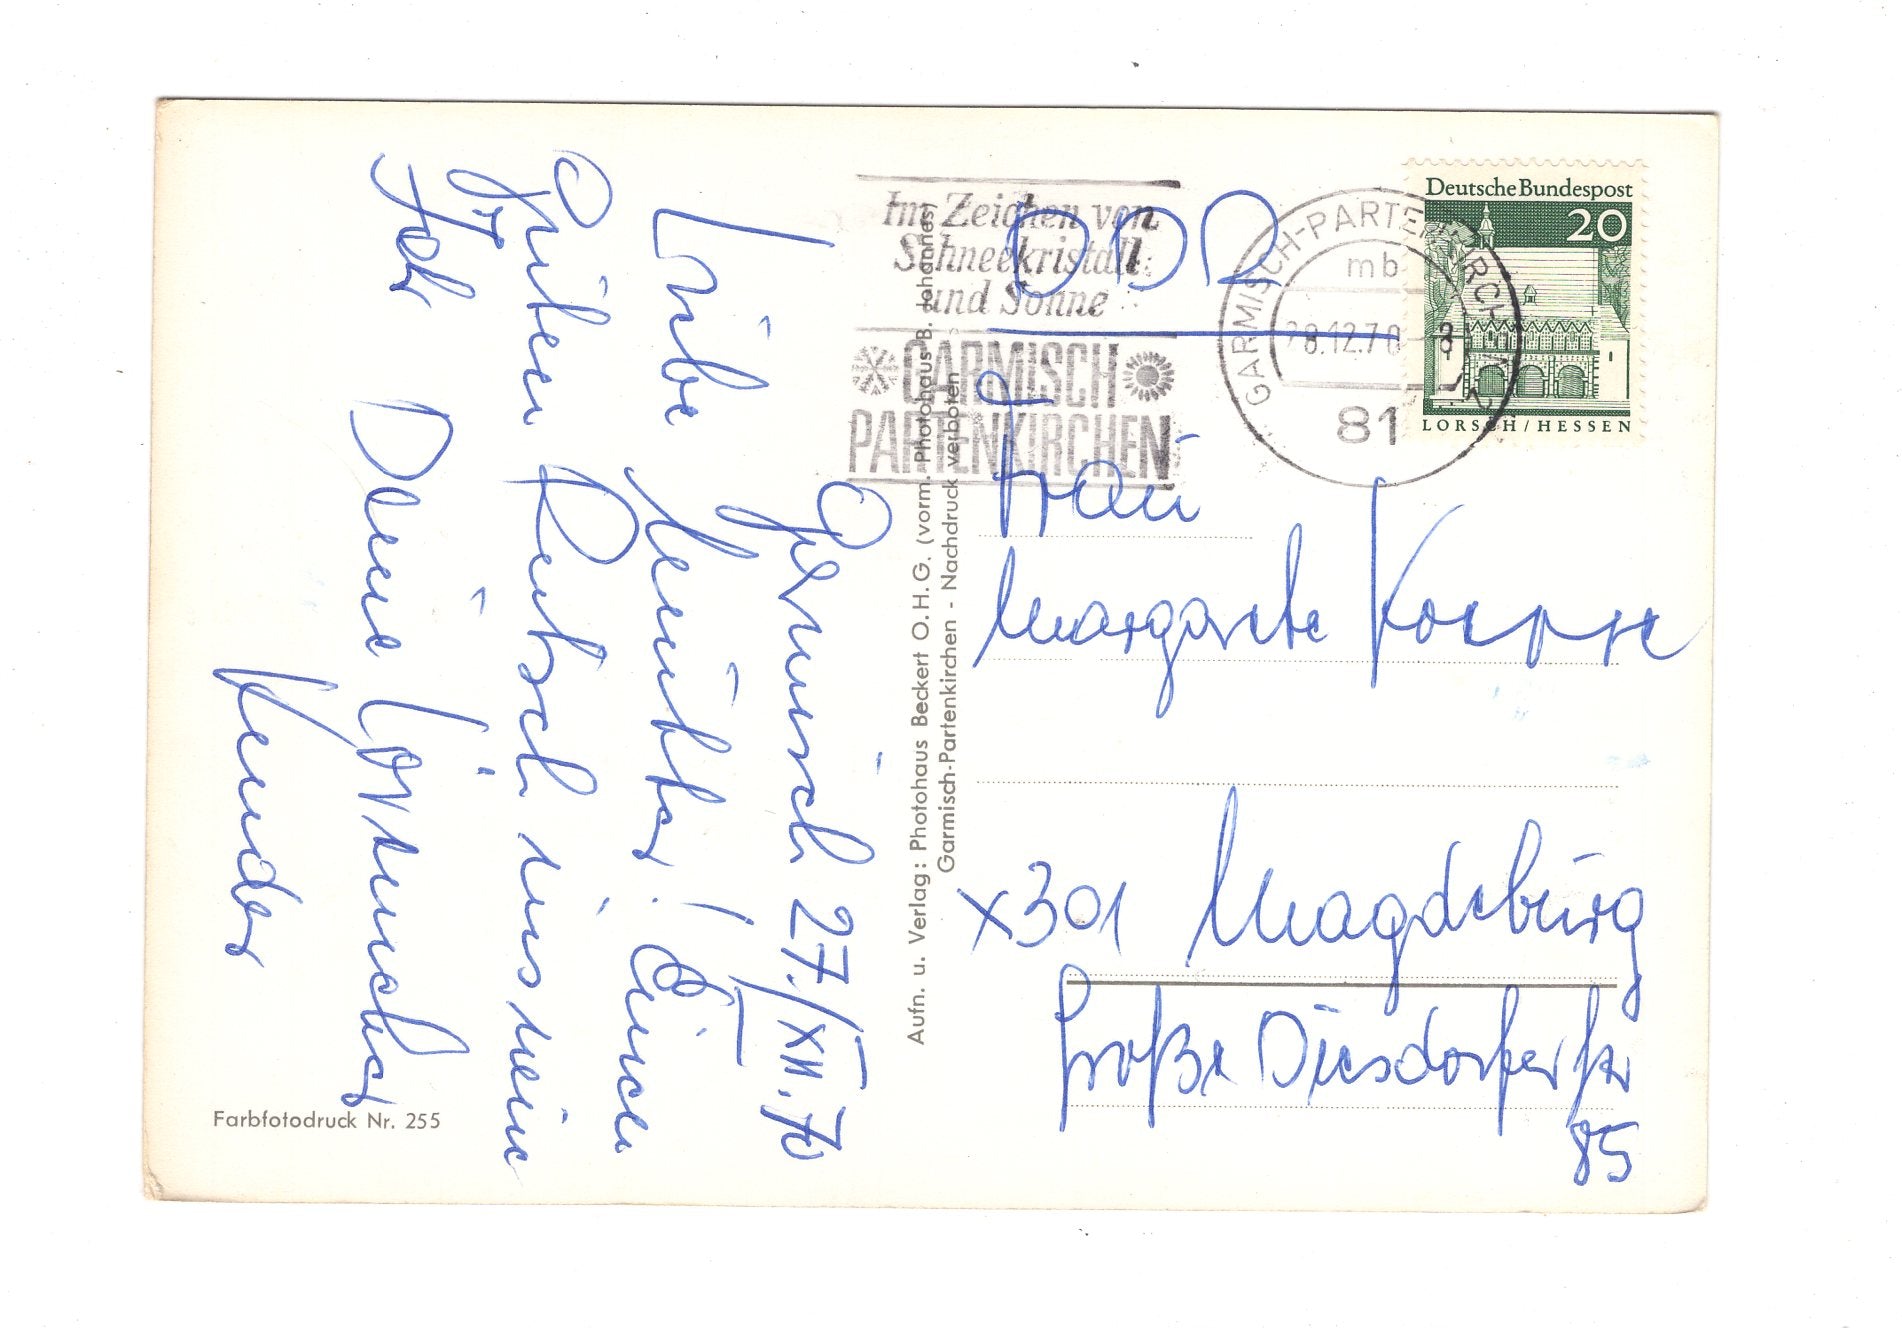 Garmisch 27./XII.70
Liebe Mutter! Einen
guten Rutsch ins neue
Jahr Deine
Kinder
Aufn. u. Verlag: Photohaus Beckert O.H.G. (vorm. Photohaus B. Johannes)
Garmisch-Partenkirchen - Nachdruck verboten
Farbfotodruck Nr. 255
Im Zeichen von
Schneekristall
und Sonne
GARMISCH
PARTENKIRCHEN
GARMISCH-PARTENKIRCHEN 2
mb
28.12.70
81
Deutsche Bundespost
20
LORSCH/HESSEN
DDR
Frau
Margarete Koeppe
X301 Magdeburg
Große Diesdorfer Str
85